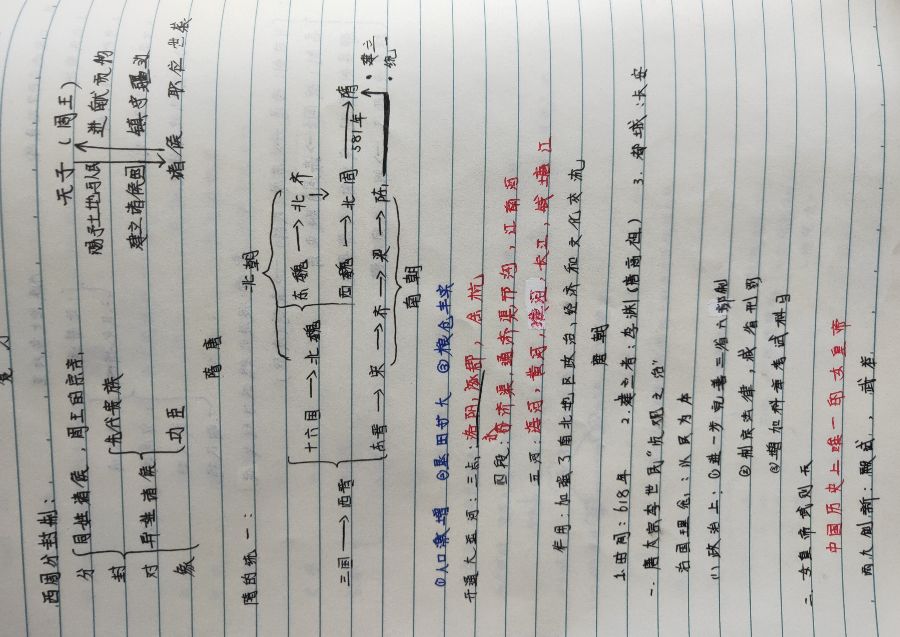 西周分封制:
分封对象
同姓诸侯,周王的宗亲,
异姓诸侯
先代贵族
功臣
天子(周王)
赐予土地与人民
进献贡物
建立诸侯国
镇守疆域
诸侯 职位世袭
隋唐
隋的统一:
北朝
三国→西晋
十六国→北魏
东魏→北齐
西魏→北周
581年
隋
·建立
·统一
东晋→宋→齐→梁→陈
南朝
①人口激增 ②垦田扩大 ③粮仓丰实
开通大运河:三点:洛阳,涿郡,余杭,
四段:永济渠,通济渠,邗沟,江南河
五河:海河,黄河,淮河,长江,钱塘江
作用:加强了南北地区政治,经济和文化交流
唐朝
1.时间:618年 2.建立者:李渊(唐高祖) 3.都城:长安
一.唐太宗李世民"贞观之治"
治国理念:以民为本
(1)政治上:①进一步完善三省六部制
②制定法律,减省刑罚
③增加科举考试科目
二.女皇帝武则天
中国历史上唯一的女皇帝
两大创新:殿试,武举